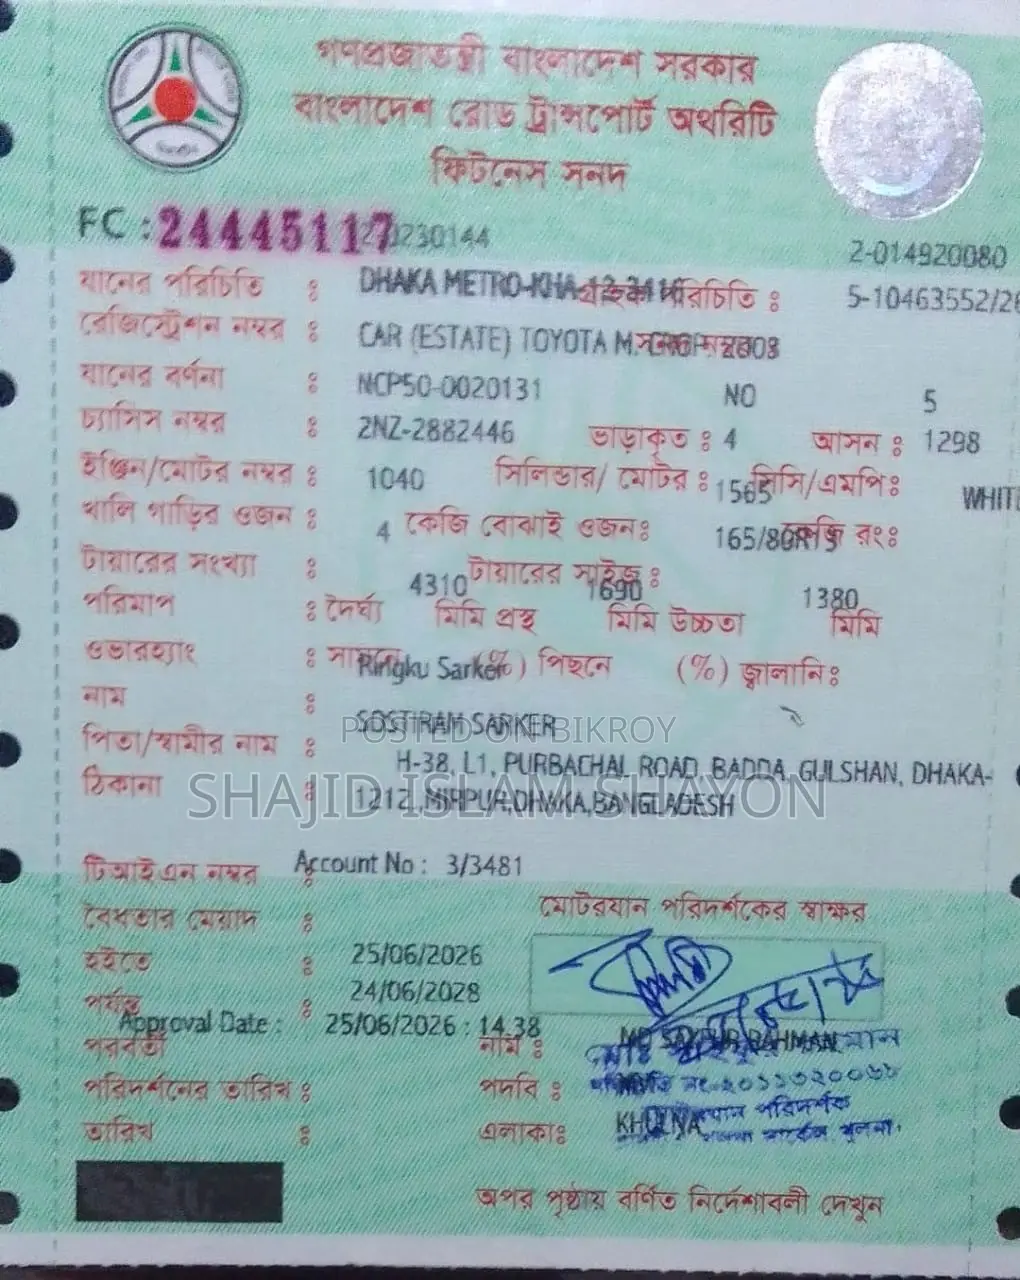 গণপ্রজাতন্ত্রী বাংলাদেশ সরকার
বাংলাদেশ রোড ট্রান্সপোর্ট অথরিটি
ফিটনেস সনদ
FC : 24445117 230144
2-014920080
যানের পরিচিতি : DHAKA METRO-KHA পরিচিতি : 5-10463552/26
রেজিস্ট্রেশন নম্বর : CAR (ESTATE) TOYOTA
যানের বর্ণনা : NCP50-0020131 NO 5
চ্যাসিস নম্বর : 2NZ-2882446 ভাড়াকৃত : 4 আসন : 1298
ইঞ্জিন/মোটর নম্বর : 1040 সিলিন্ডার/ মোটর : 1565 সিসি/এমপি: WHITE
খালি গাড়ির ওজন : 4 কেজি বোঝাই ওজন: 165/80R15 কেজি রং:
টায়ারের সংখ্যা : 4310 টায়ারের সাইজ : 1690 1380
পরিমাপ : দৈর্ঘ্য মিমি প্রস্থ মিমি উচ্চতা মিমি
ওভারহ্যাং : সামনে (%) পিছনে (%) জ্বালানি:
Ringku Sarker
নাম :
SOSTIRAM SARKER
POSTED ON BIKROY
পিতা/স্বামীর নাম :
H-38, L1, PURBACHAL ROAD, BADDA, GULSHAN, DHAKA-
ঠিকানা : 1212, MIRPUR, DHAKA, BANGLADESH
SHAJID ISLAM SHAYON
টিআইএন নম্বর : Account No : 3/3481
বৈধতার মেয়াদ :
মোটরযান পরিদর্শকের স্বাক্ষর
হইতে : 25/06/2026
পর্যন্ত : 24/06/2028
Approval Date : 25/06/2026 : 14.38
পরবর্তী নাম :
পরিদর্শনের তারিখ : পদবি :
তারিখ : এলাকা: KHULNA
অপর পৃষ্ঠায় বর্ণিত নির্দেশাবলী দেখুন